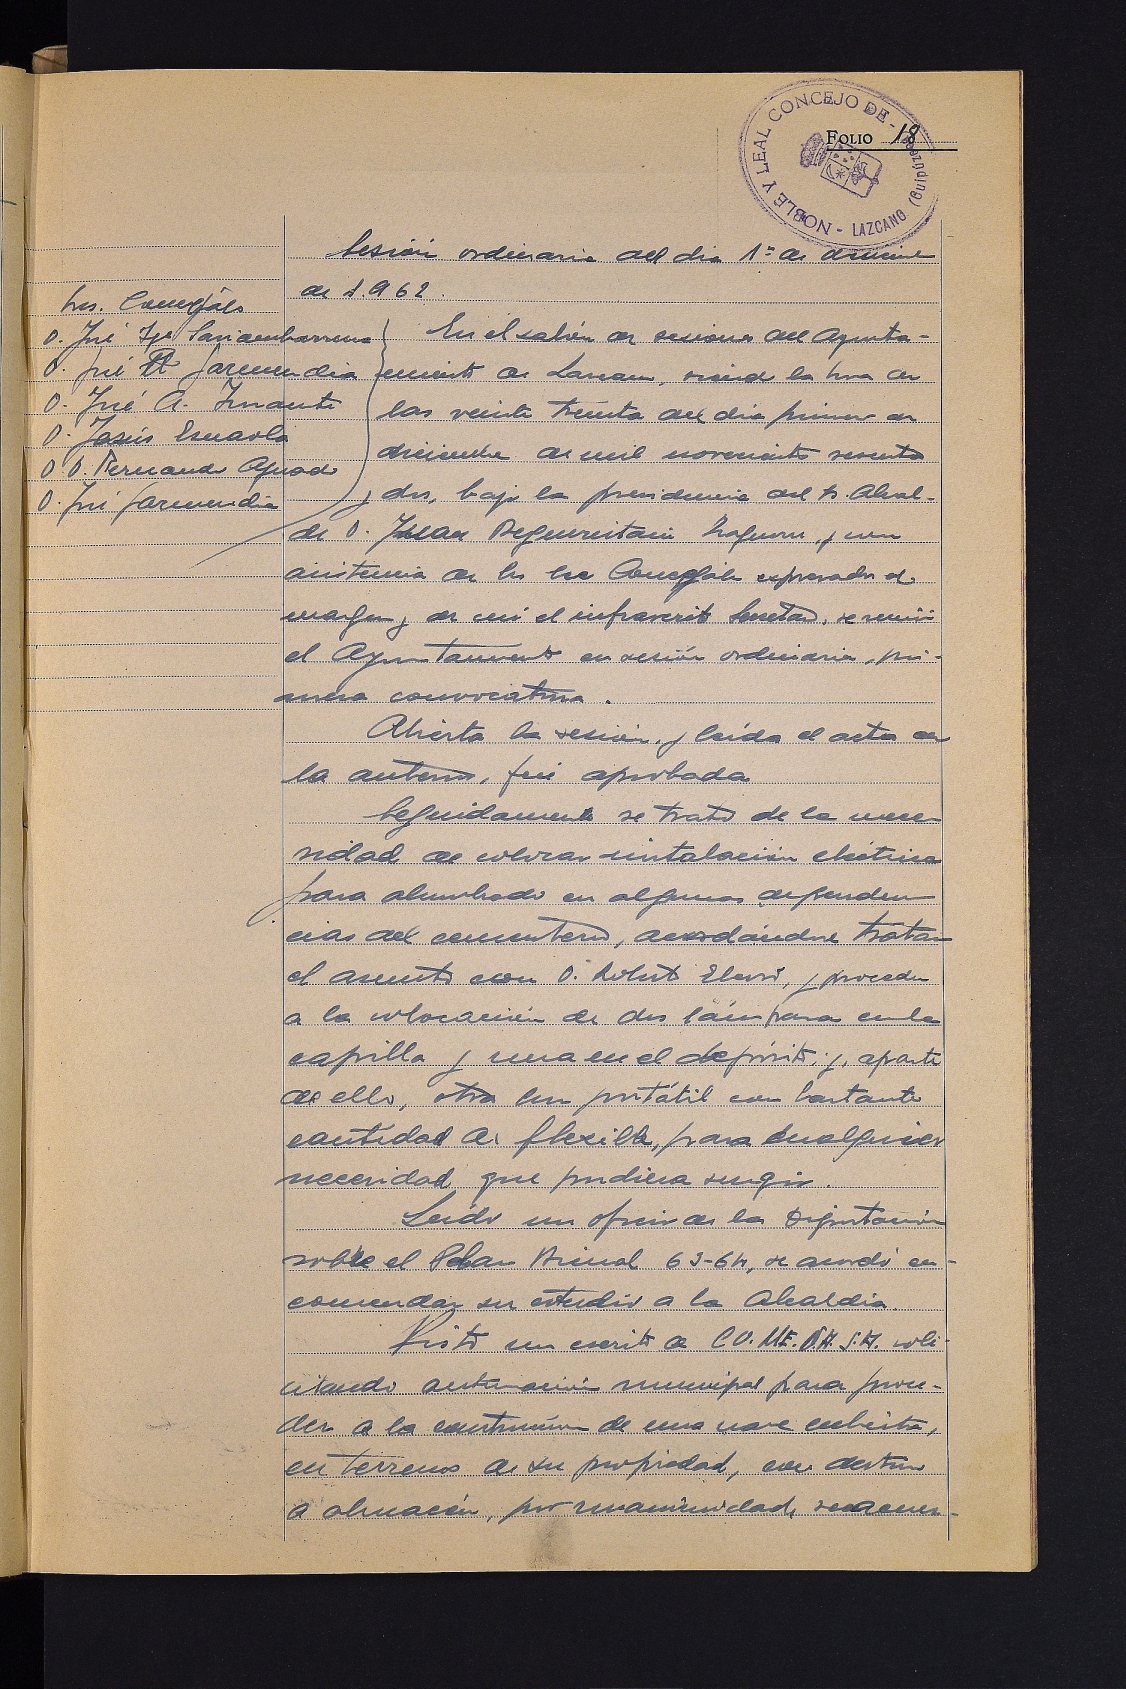 NOBLE Y LEAL CONCEJO DE - LAZCANO (Guipúzcoa)
FOLIO 18
Sesión ordinaria del dia 1º de diciembre
de 1.962.
Sres. Concejales
D. José Igº
D. José Mª Garmendia
D. José A. Insausti
D. Jesús Esnaola
D. Fernando Aguado
D. José Garmendia
En el salón de sesiones del Ayunta-
miento de Lazcano, siendo la hora de
las veinte treinta del dia primero de
diciembre de mil novecientos sesenta
y dos, bajo la presidencia del Sr. Alcal-
de D. Isaac Beguiristain y con
asistencia de los Sres Concejales expresados al
margen y de mi el infrascrito Secretario, se reunió
el Ayuntamiento en sesión ordinaria, pri-
mera convocatoria.
Abierta la sesión, y leída el acta de
la anterior, fué aprobada
Seguidamente se trató de la nece-
sidad de colocar instalación eléctrica
para alumbrado en algunas dependen-
cias del cementerio, acordándose tratar
el asunto con D. y proceder
a la colocación de dos lámparas en la
capilla y una en el depósito; y, aparte
de ello, otra luz portátil con bastante
cantidad de flexible, para cualquier
necesidad que pudiera surgir.
Leído un oficio de la Diputación
sobre el Plan Bienal 63-64, se acordó en-
comendar su estudio a la Alcaldia
Visto un escrito de CO.ME.NA.S.A. soli-
citando autorización municipal para proce-
der a la construcción de una nave cubierta,
en terrenos de su propiedad, con destino
a almacén, por unanimidad, se acuer-